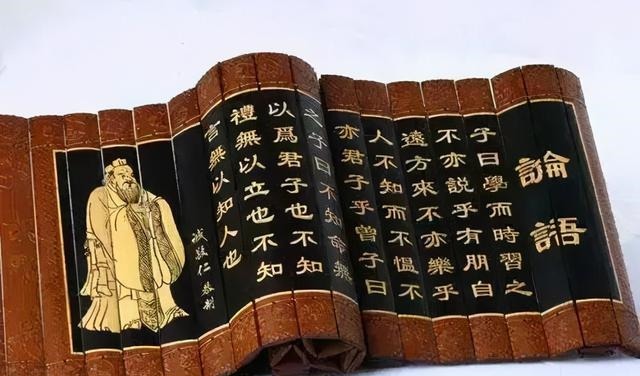 論語
子曰學而時習之
不亦說乎有朋自
遠方來不亦樂乎
人不知而不愠不
亦君子乎曾子曰
之子曰不知命無
以爲君子也不知
禮無以立也不知
言無以知人也
仁恭制